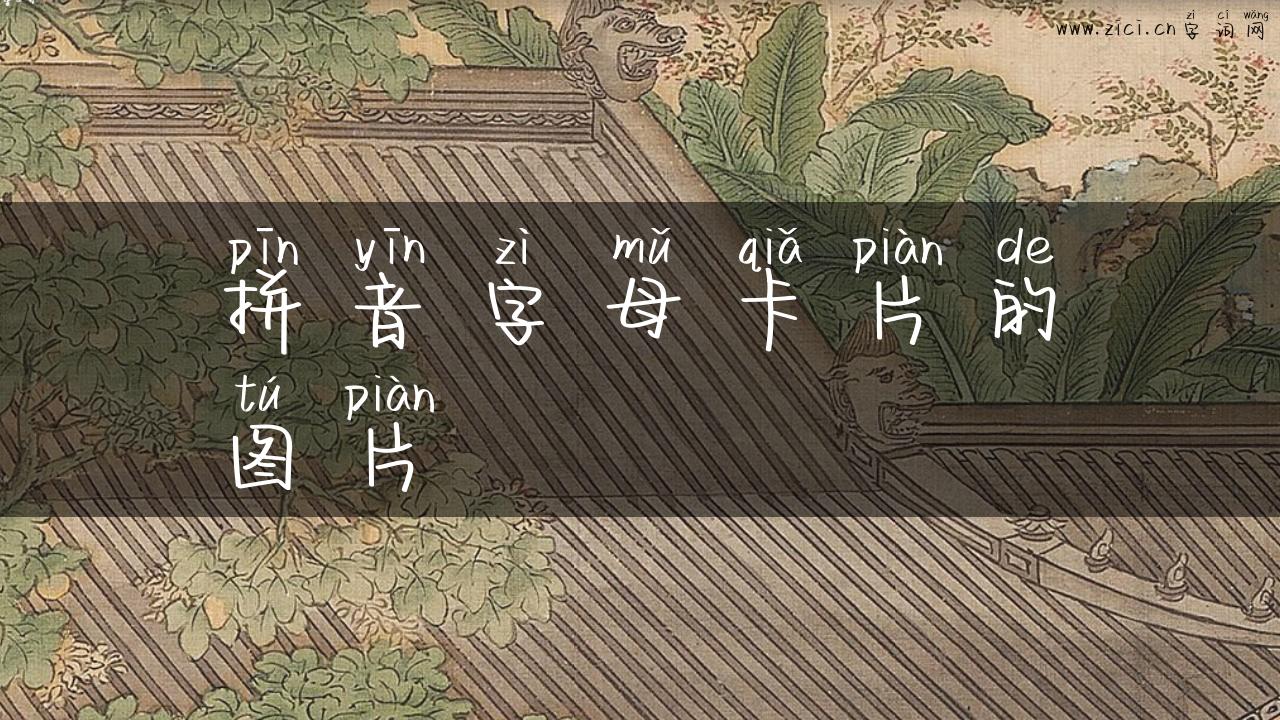 zì cí wǎng
www.zici.cn 字词网
pīn yīn zì mǔ qiǎ piàn de
拼音字母卡片的
tú piàn
图片